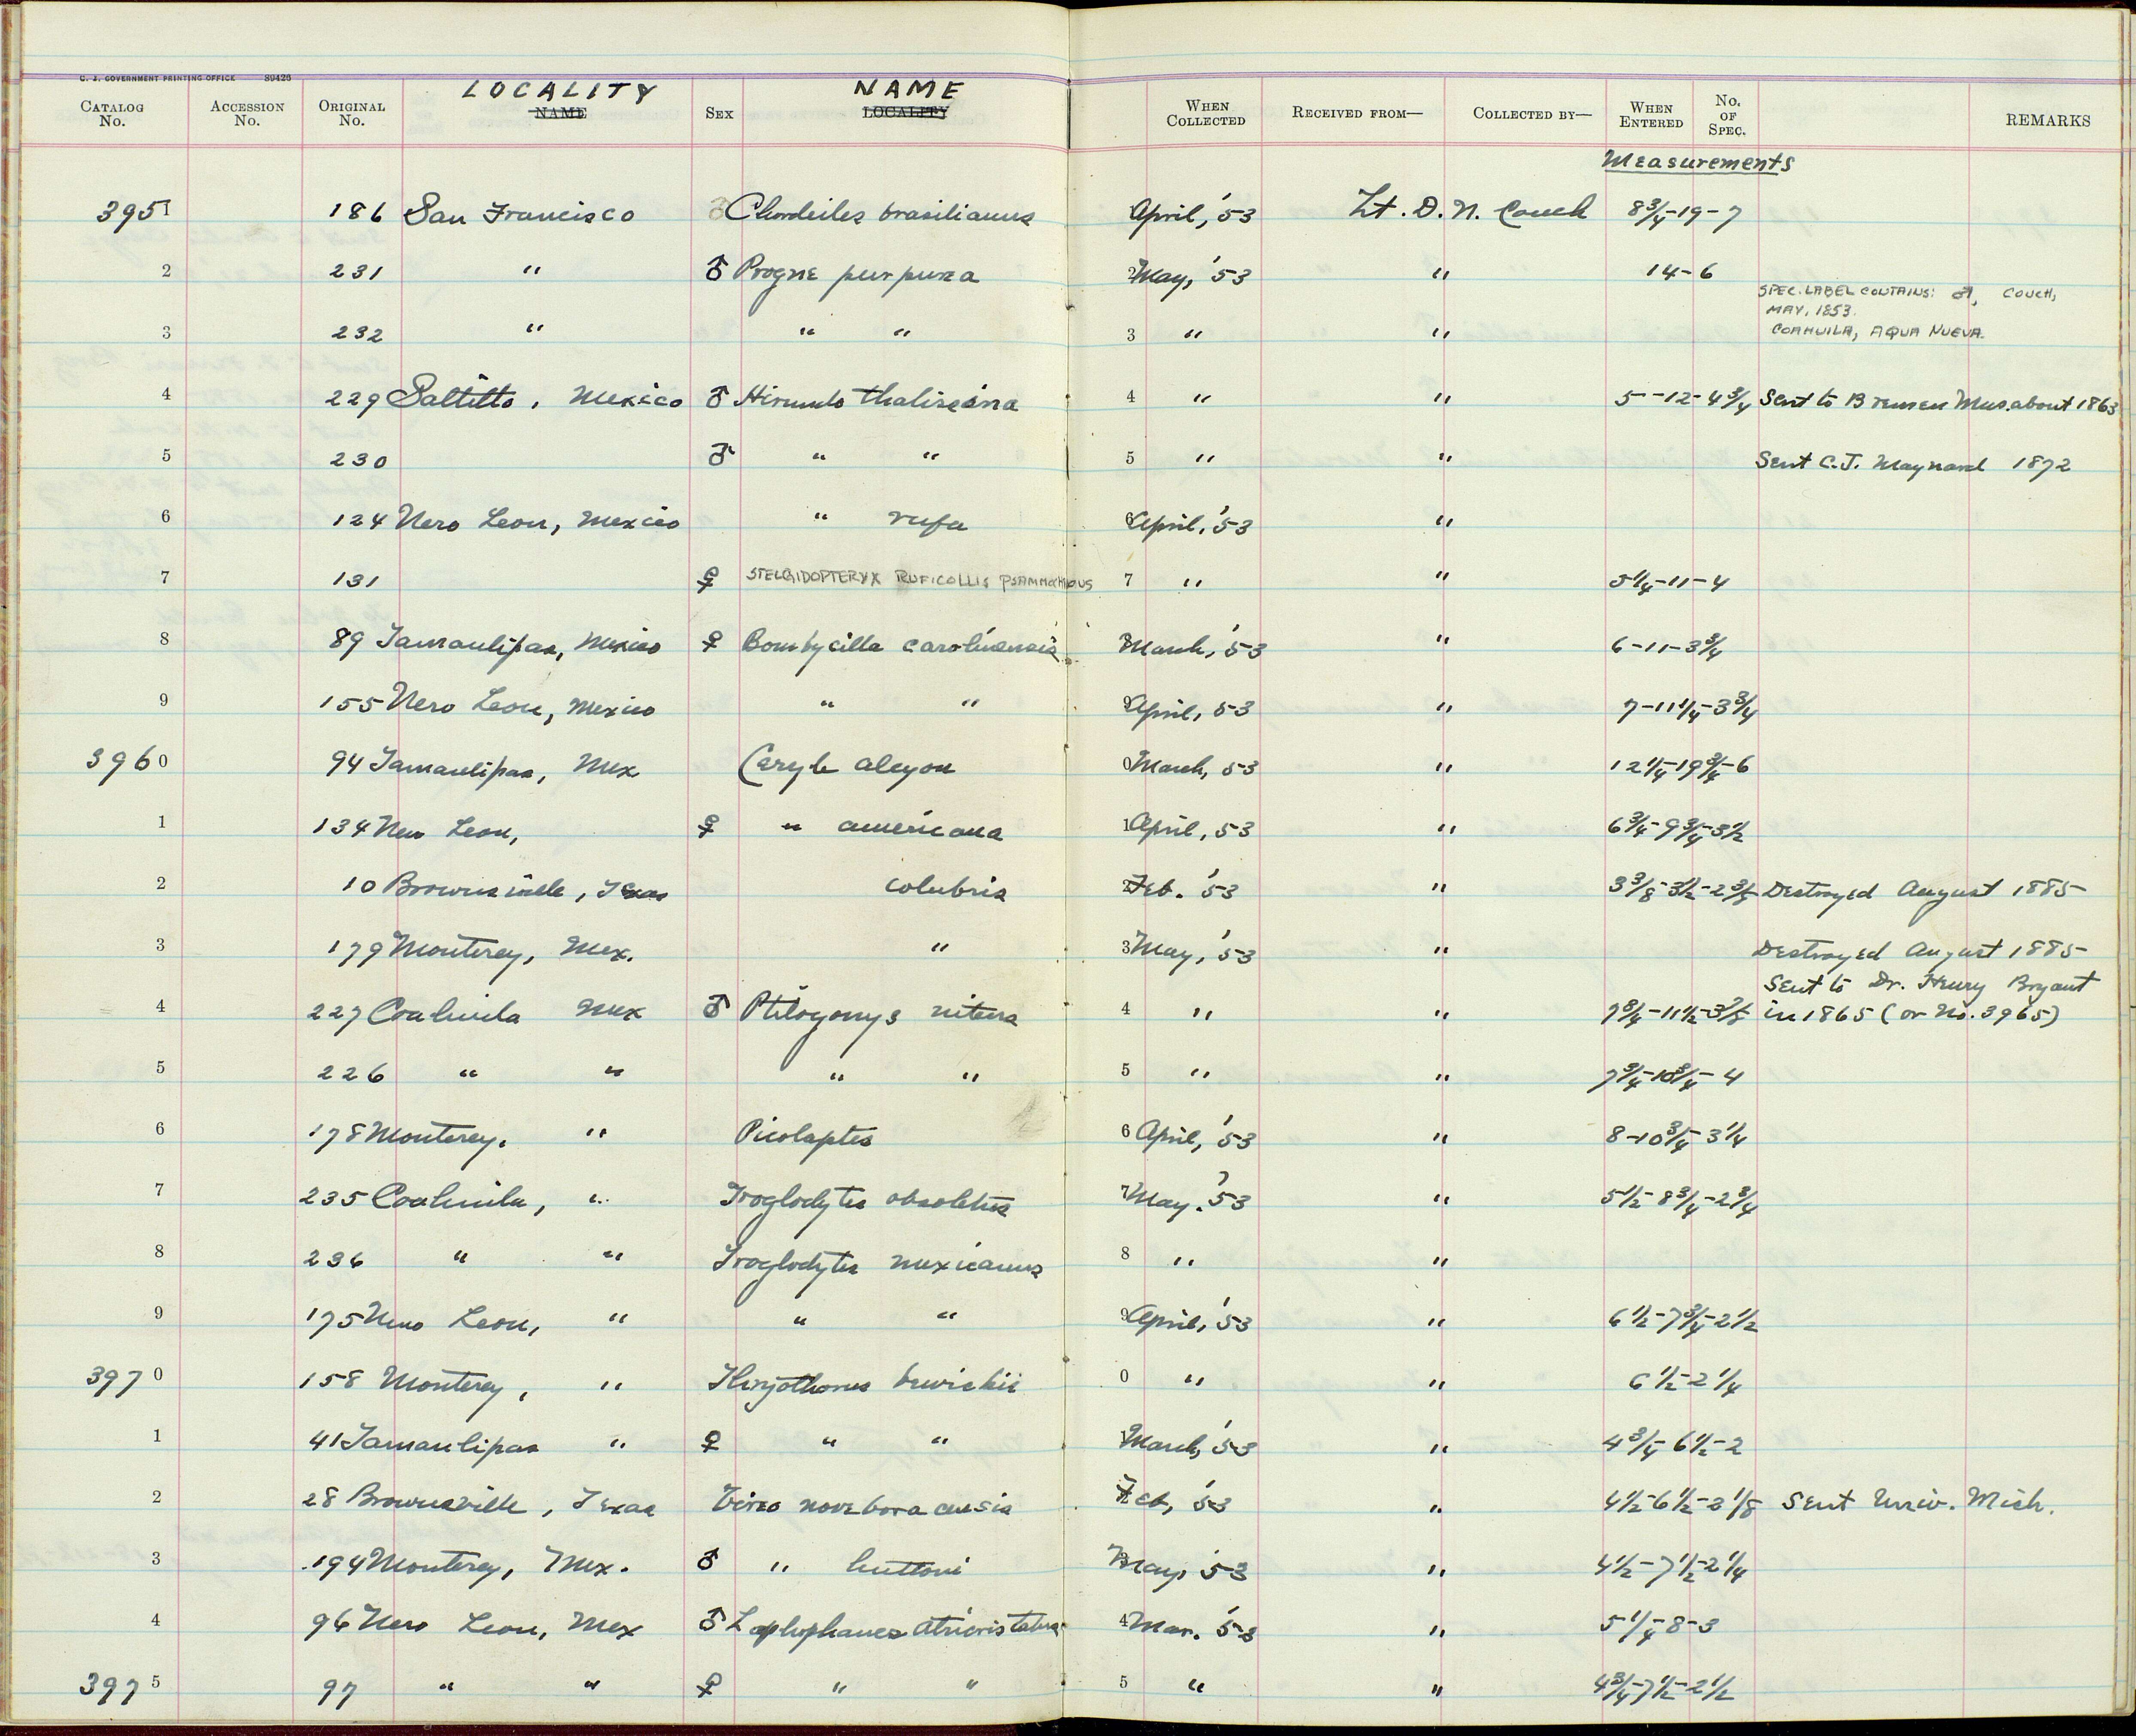 C. J. GOVERNMENT PRINTING OFFICE 89426
LOCALITY NAME
CATALOG No. ACCESSION No. ORIGINAL No. NAME SEX LOCALITY WHEN COLLECTED RECEIVED FROM— COLLECTED BY— WHEN ENTERED No. OF SPEC. REMARKS
Measurements
3951 186 San Francisco ♂ Chordeiles brasilianus 1 April, '53 Lt. D. N. Couch 8 3/4-19-7
2 231 " ♂ Progne purpurea 2 May, '53 " 14-6
SPEC. LABEL CONTAINS: ♂, COUCH,
MAY, 1853.
3 232 " " " 3 " " COAHUILA, AQUA NUEVA.
4 229 Saltillo, Mexico ♂ Hirundo thalissina 4 " " 5-12-4 3/4 Sent to Bremen Mus. about 1863
5 230 ♂ " " 5 " " Sent C. J. Maynard 1872
6 124 Nero Leon, Mexico " rufa 6 April, '53 "
7 131 ♀ STELGIDOPTERYX RUFICOLLIS PSAMMOCHROUS 7 " " 5 1/4-11-4
8 89 Tamaulipas, Mexico ♀ Bombycilla carolinensis 8 March, '53 " 6-11-3 3/4
9 155 Nero Leon, Mexico " " 9 April, 53 " 7-11 1/4-3 3/4
3960 94 Tamaulipas, Mex Ceryle alcyon 0 March, 53 " 12 1/4-19 3/4-6
1 134 New Leon, ♀ " americana 1 April, 53 " 6 3/4-9 3/4-3 1/2
2 10 Brownsville, Texas colubris 2 Feb. '53 " 3 3/8-3 1/2-2 3/8 Destroyed August 1885
3 179 Monterey, Mex. " 3 May, '53 " Destroyed August 1885
Sent to Dr. Henry Bryant
4 227 Coahuila Mex ♂ Ptilogonys nitens 4 " " 7 3/4-11 1/2-3 7/8 in 1865 (or No. 3965)
5 226 " " " " 5 " " 7 3/4-10 3/4-4
6 178 Monterey, " Picolaptes 6 April, '53 " 8-10 3/4-3 1/4
7 235 Coahuila, " Troglodytes obsoletus 7 May. '53 " 5 1/2-8 3/4-2 3/4
8 236 " " Troglodytes mexicanus 8 " "
9 175 New Leon, " " " 9 April, '53 " 6 1/2-7 3/4-2 1/2
3970 158 Monterey, " Thryothorus bewickii 0 " " 6 1/2-2 1/4
1 41 Tamaulipas " ♀ " " 1 March, '53 " 4 3/4-6 1/2-2
2 28 Brownsville, Texas Vireo noveboracensis Feb, '53 " 4 1/2-6 1/2-2 1/8 Sent Univ. Mich.
3 194 Monterey, Mex. ♂ " huttoni 3 May, 53 " 4 1/2-7 1/2-2 1/4
4 96 Nero Leon, Mex ♂ Lophophanes atricristatus 4 Mar. '53 " 5 1/4-8-3
3975 97 " " ♀ " " 5 " " 4 3/4-7 1/2-2 1/2